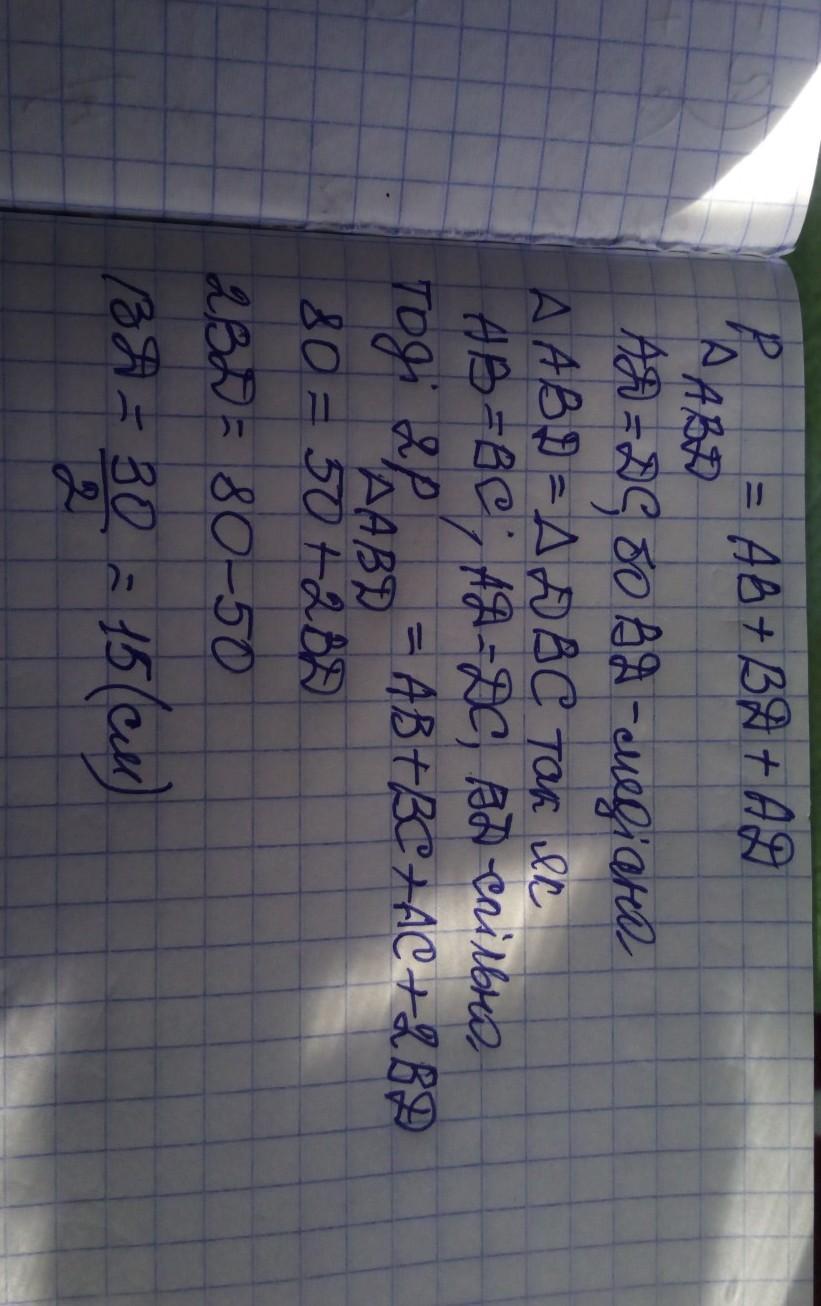 P△ABD = AB + BD + AD
AD = DC, бо BD - медіана
△ ABD = △ DBC так як
AB = BC; AD = DC, BD - спільна
тоді 2P△ABD = AB + BC + AC + 2BD
80 = 50 + 2BD
2BD = 80 - 50
BD = 30/2 = 15 (см)